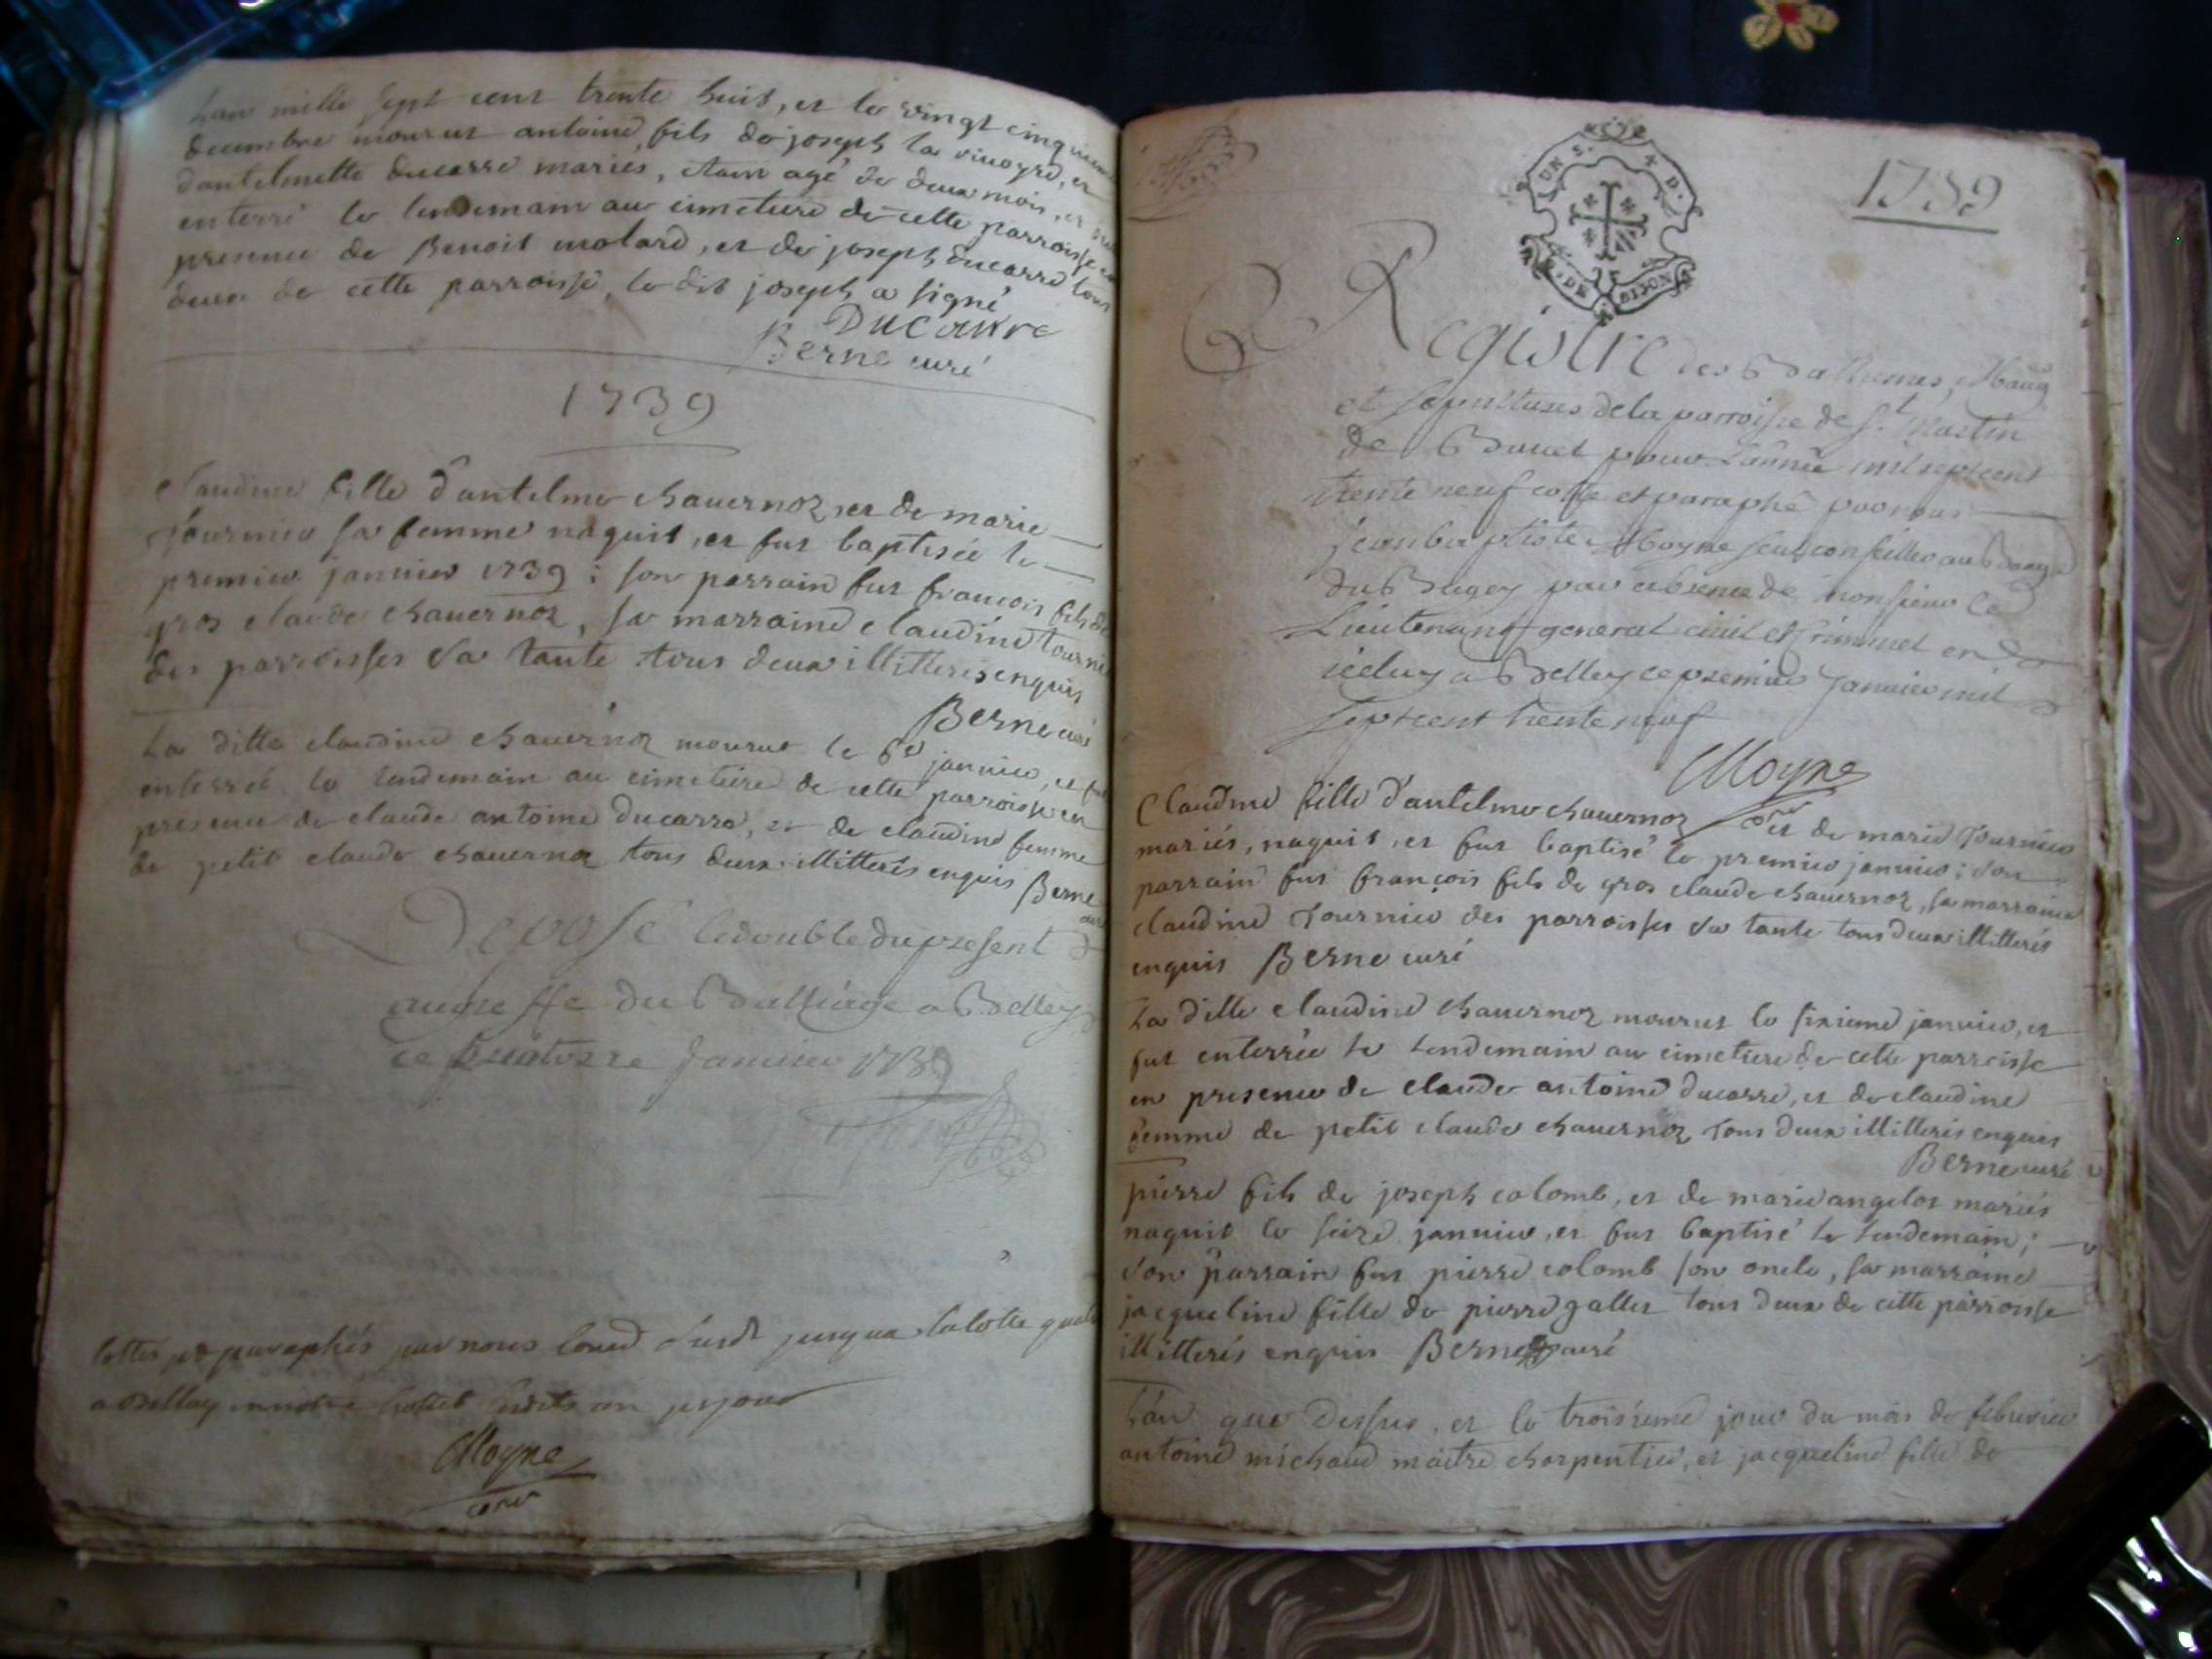 Lan mille sept cent trente huit, et le vingt cinquieme
decembre mourut antoine, fils de joseph la vinoyre, et
dantelmette ducarre mariés, etant agé de deux mois, et
enterré le lendemain au cimetiere de cette parroisse en
presence de Benoit molard, et de joseph ducarre tous
deux de cette parroisse, le dit joseph a signé
Ducarre
Berne curé
1739
Claudine fille d'antelme chauernoz, et de marie
fournier sa femme naquit, et fut baptisée le
premier janvier 1739 : son parrain fut francois fils de
gros claude chauernoz, sa marraine claudine fournier
des parroisses sa tante tous deux illitterés enquis
Berne curé
La ditte claudine chauernoz mourut le 6e janvier, et fut
enterrée le lendemain au cimetiere de cette parroisse en
presence de claude antoine ducarre, et de claudine femme
de petit claude chauernoz tous deux illitterés enquis Berne
curé
Deposé le double du present
au greffe du Balliage a Belley
ce quatorze Janvier 1739
cottés et paraphés par nous jusqua la cotte
a Belley en notre hostel
Moyne
1739
UN S. D.
G. DE DIJON
Registre des Bathemes, Mariag
et sepultures de la parroisse de St. Martin
de Bauel pour l'année mil sept cent
trente neuf cotté et paraphé par nous
jean baptiste Moyne seul conseiller au Baage
du Bugey par absence de monsieur le
Lieutenant general ciuil et criminel en
iceluy a Belley ce premier Janvier mil
sept cent trente neuf
Moyne
Claudine fille d'antelme chauernoz et de marie fournier
mariés, naquit, et fut baptisé le premier janvier; son
parrain fut françois fils de gros claude chauernoz, sa marraine
claudine fournier des parroisses sa tante tous deux illitterés
enquis Berne curé
La ditte claudine chauernoz mourut le sixieme janvier, et
fut enterrée le lendemain au cimetiere de cette parroisse
en presence de claude antoine ducarre, et de claudine
femme de petit claude chauernoz tous deux illitterés enquis
Berne curé
pierre fils de joseph colomb, et de marie angelot mariés
naquit le seize janvier, et fut baptisé le lendemain;
son parrain fut pierre colomb son oncle, sa marraine
jacqueline fille de pierre gallet tous deux de cette parroisse
illitterés enquis Berne curé
L'an que dessus, et le troisieme jour du mois de febvrier
antoine michaud maitre charpentier, et jacqueline fille de